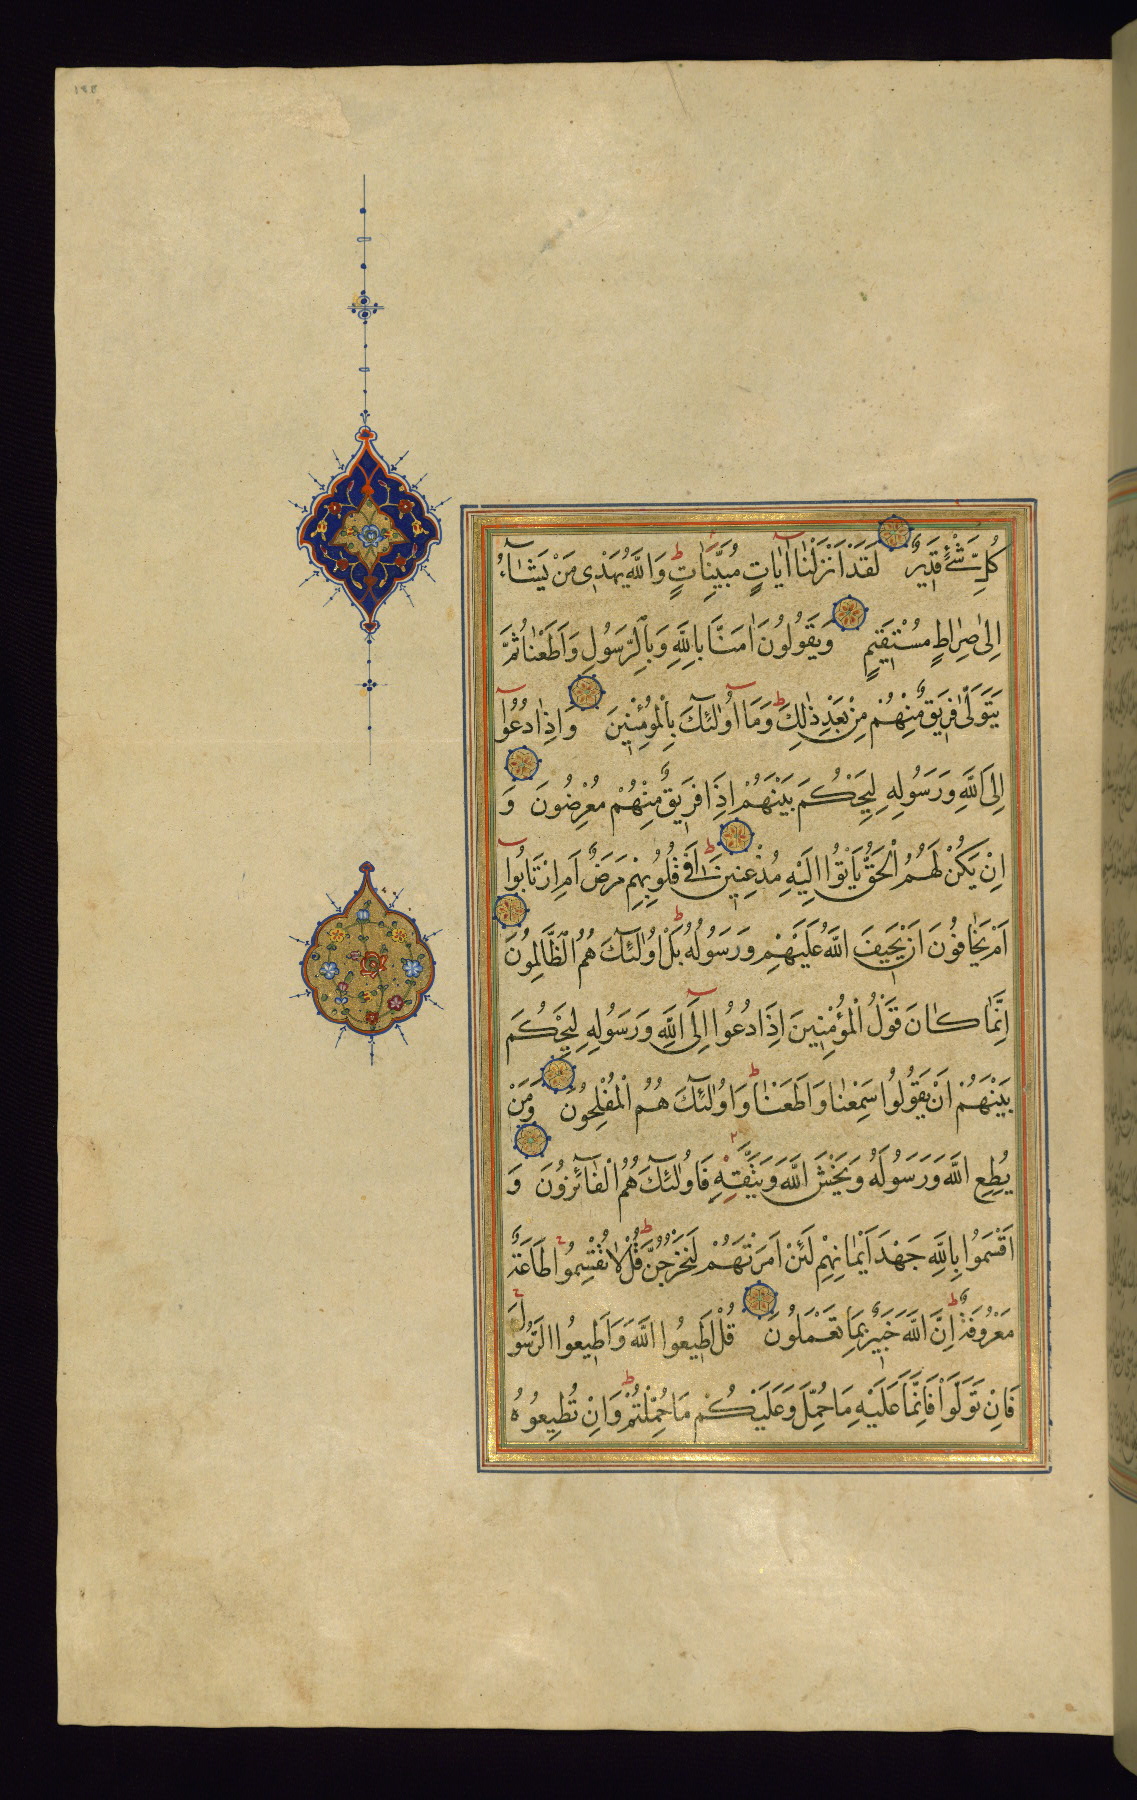 كُلِّ شَیْءٍ قَدِيرٌ لَقَدْ اَنْزَلْنَا اٰيَاتٍ مُبَيِّنَاتٍ وَاللّٰهُ يَهْدِى مَنْ يَشَاءُ
اِلٰى صِرَاطٍ مُسْتَقِيمٍ وَيَقُولُونَ اٰمَنَّا بِاللّٰهِ وَبِالرَّسُولِ وَاَطَعْنَا ثُمَّ
يَتَوَلّٰى فَرِيقٌ مِنْهُمْ مِنْ بَعْدِ ذٰلِكَ وَمَا اُولٰئِكَ بِالْمُؤْمِنِينَ وَاِذَا دُعُوا
اِلَى اللّٰهِ وَرَسُولِهِ لِيَحْكُمَ بَيْنَهُمْ اِذَا فَرِيقٌ مِنْهُمْ مُعْرِضُونَ وَ
اِنْ يَكُنْ لَهُمُ الْحَقُّ يَأْتُوا اِلَيْهِ مُذْعِنِينَ اَفِى قُلُوبِهِمْ مَرَضٌ اَمِ ارْتَابُوا
اَمْ يَخَافُونَ اَنْ يَحِيفَ اللّٰهُ عَلَيْهِمْ وَرَسُولُهُ بَلْ اُولٰئِكَ هُمُ الظَّالِمُونَ
اِنَّمَا كَانَ قَوْلُ الْمُؤْمِنِينَ اِذَا دُعُوا اِلَى اللّٰهِ وَرَسُولِهِ لِيَحْكُمَ
بَيْنَهُمْ اَنْ يَقُولُوا سَمِعْنَا وَاَطَعْنَا وَاُولٰئِكَ هُمُ الْمُفْلِحُونَ وَمَنْ
يُطِعِ اللّٰهَ وَرَسُولَهُ وَيَخْشَ اللّٰهَ وَيَتَّقْهِ فَاُولٰئِكَ هُمُ الْفَائِزُونَ وَ
اَقْسَمُوا بِاللّٰهِ جَهْدَ اَيْمَانِهِمْ لَئِنْ اَمَرْتَهُمْ لَيَخْرُجُنَّ قُلْ لَا تُقْسِمُوا طَاعَةٌ
مَعْرُوفَةٌ اِنَّ اللّٰهَ خَبِيرٌ بِمَا تَعْمَلُونَ قُلْ اَطِيعُوا اللّٰهَ وَاَطِيعُوا الرَّسُولَ
فَاِنْ تَوَلَّوْا فَاِنَّمَا عَلَيْهِ مَا حُمِّلَ وَعَلَيْكُمْ مَا حُمِّلْتُمْ وَاِنْ تُطِيعُوهُ